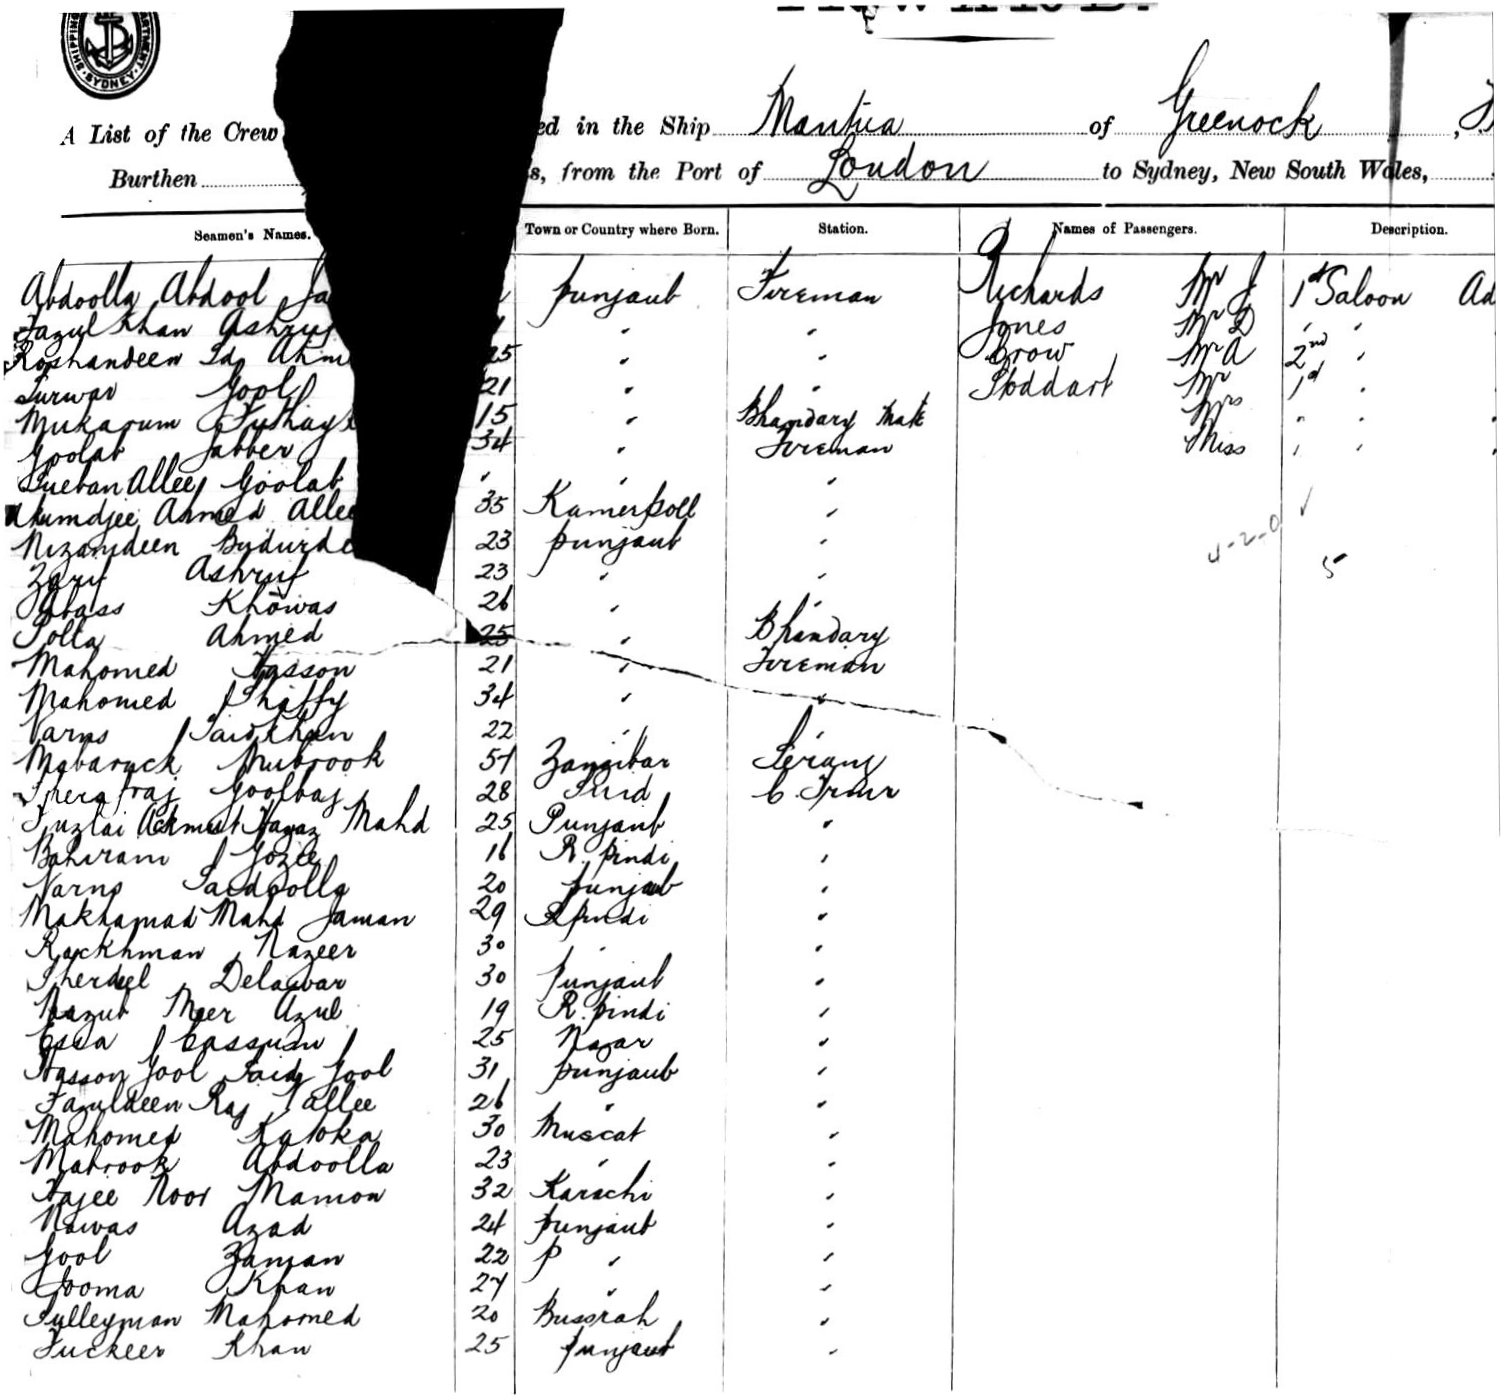 SHIPPING DEPARTMENT SYDNEY
A List of the Crew ed in the Ship Mantua of Greenock,
Burthen s, from the Port of London to Sydney, New South Wales,
Seamen's Names. Town or Country where Born. Station. Names of Passengers. Description.
Abdoolla Abdool Ja punjaub Fireman Richards Mr J 1st Saloon Ad
Fazul Khan Ashruf " " Jones Mr D " "
Roshandeen Sd Ahm 25 " " Mr A 2nd "
Surwar Gool 21 " " Stoddart Mr 1st "
Mukarum 15 " Bhandary Mate Mrs " "
Goolab Jabber 34 " Fireman Miss " "
Allee Goolab " " "
Ahmed Allee 35 "
Nizamdeen 23 punjaub "
Zarif Ashruf 23 " "
Abass Khowas 26 " "
Ahmed 25 " Bhandary
Mahomed Hasson 21 " Fireman
Mahomed Shaffy 34 " "
Said Khan 22 " "
Mabaruck Mubrook 51 Zanzibar Serang
Goolbaj 28
Mahd 25 Punjaub "
16 R. pindi "
Saidoolla 20 punjaub "
Mahd Jaman 29 R pindi "
Rackhman Nazeer 30 " "
Sherdil Delawar 30 punjaub "
Meer Azul 19 R. pindi "
Essa Cassum 25 "
Hasson Gool Said Gool 31 punjaub "
Fazuldeen Raj Tallee 26 " "
Mahomed 30 Muscat "
Mabrook Abdoolla 23 " "
Hajee Noor Mamon 32 Karachi "
Nawas Azad 24 punjaub "
Gool Zaman 22 p " "
Jooma Khan 27 " "
Sulleyman Mahomed 20 Bussrah "
Fuckeer Khan 25 punjaub "